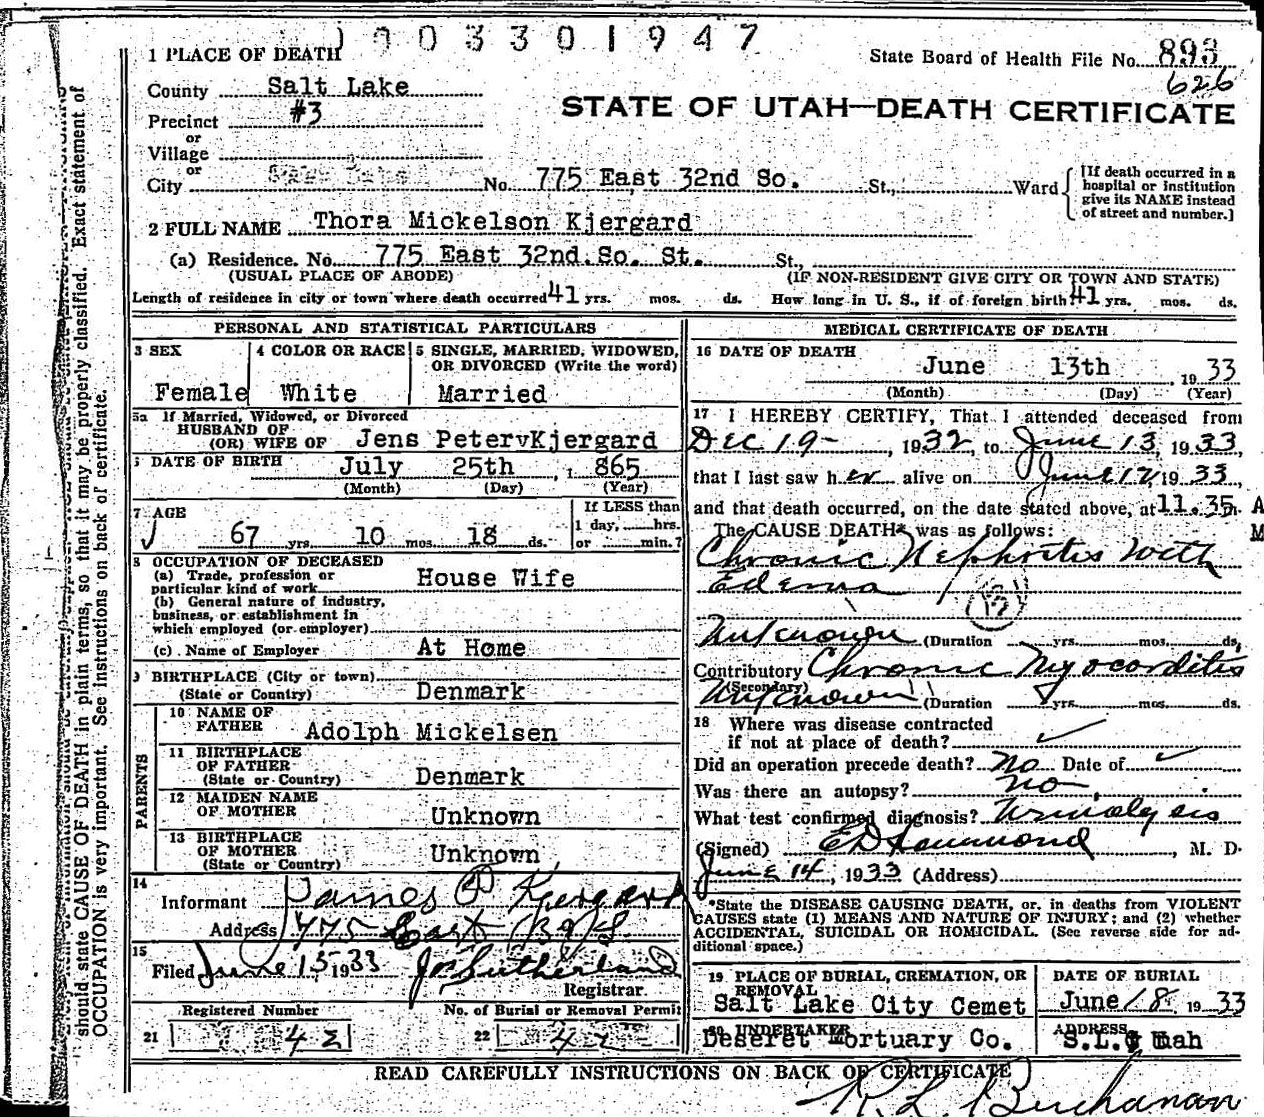 1003301947
State Board of Health File No. 893
626
1 PLACE OF DEATH
County Salt Lake
Precinct #3
or
Village
or
City
STATE OF UTAH—DEATH CERTIFICATE
No. 775 East 32nd So. St., Ward
[If death occurred in a
hospital or institution
give its NAME instead
of street and number.]
2 FULL NAME Thora Mickelson Kjergard
(a) Residence. No. 775 East 32nd. So. St. St.,
(USUAL PLACE OF ABODE) (IF NON-RESIDENT GIVE CITY OR TOWN AND STATE)
Length of residence in city or town where death occurred 41 yrs. mos. ds. How long in U. S., if of foreign birth 41 yrs. mos. ds.
PERSONAL AND STATISTICAL PARTICULARS
3 SEX
Female
4 COLOR OR RACE
White
5 SINGLE, MARRIED, WIDOWED,
OR DIVORCED (Write the word)
Married
5a If Married, Widowed, or Divorced
HUSBAND OF
(OR) WIFE OF Jens Peter Kjergard
6 DATE OF BIRTH July 25th, 1865
(Month) (Day) (Year)
7 AGE
67 yrs. 10 mos. 18 ds.
If LESS than
1 day, hrs.
or min.?
8 OCCUPATION OF DECEASED
(a) Trade, profession or
particular kind of work House Wife
(b) General nature of industry,
business, or establishment in
which employed (or employer)
(c) Name of Employer At Home
9 BIRTHPLACE (City or town)
(State or Country) Denmark
PARENTS
10 NAME OF
FATHER Adolph Mickelsen
11 BIRTHPLACE
OF FATHER
(State or Country) Denmark
12 MAIDEN NAME
OF MOTHER Unknown
13 BIRTHPLACE
OF MOTHER
(State or Country) Unknown
14
Informant James P Kjergard
Address 775 East
15
Filed June 15 1933
Registrar.
Registered Number
21 42
No. of Burial or Removal Permit
22 42
MEDICAL CERTIFICATE OF DEATH
16 DATE OF DEATH
June 13th, 1933
(Month) (Day) (Year)
17 I HEREBY CERTIFY, That I attended deceased from
Dec 19-, 1932, to June 13, 1933,
that I last saw her alive on June 12 1933,
and that death occurred, on the date stated above, at 11.35 m. A
M
The CAUSE DEATH* was as follows:
Chronic Nephritis with
Edema
Unknown (Duration yrs. mos. ds.
Contributory Chronic Myocorditis
(Secondary)
Unknown (Duration yrs. mos. ds.
18 Where was disease contracted
if not at place of death?
Did an operation precede death? No Date of
Was there an autopsy? No
What test confirmed diagnosis? Urinalysis
(Signed) E D Hammond, M. D.
June 14, 1933 (Address)
*State the DISEASE CAUSING DEATH, or, in deaths from VIOLENT
CAUSES state (1) MEANS AND NATURE OF INJURY; and (2) whether
ACCIDENTAL, SUICIDAL OR HOMICIDAL. (See reverse side for ad-
ditional space.)
19 PLACE OF BURIAL, CREMATION, OR
REMOVAL
Salt Lake City Cemet
DATE OF BURIAL
June 18 1933
20 UNDERTAKER
Deseret Mortuary Co.
ADDRESS
S.L. Utah
READ CAREFULLY INSTRUCTIONS ON BACK OF CERTIFICATE
R. L. Buchanan
should state CAUSE OF DEATH in plain terms, so that it may be properly classified. Exact statement of
OCCUPATION is very important. See instructions on back of certificate.